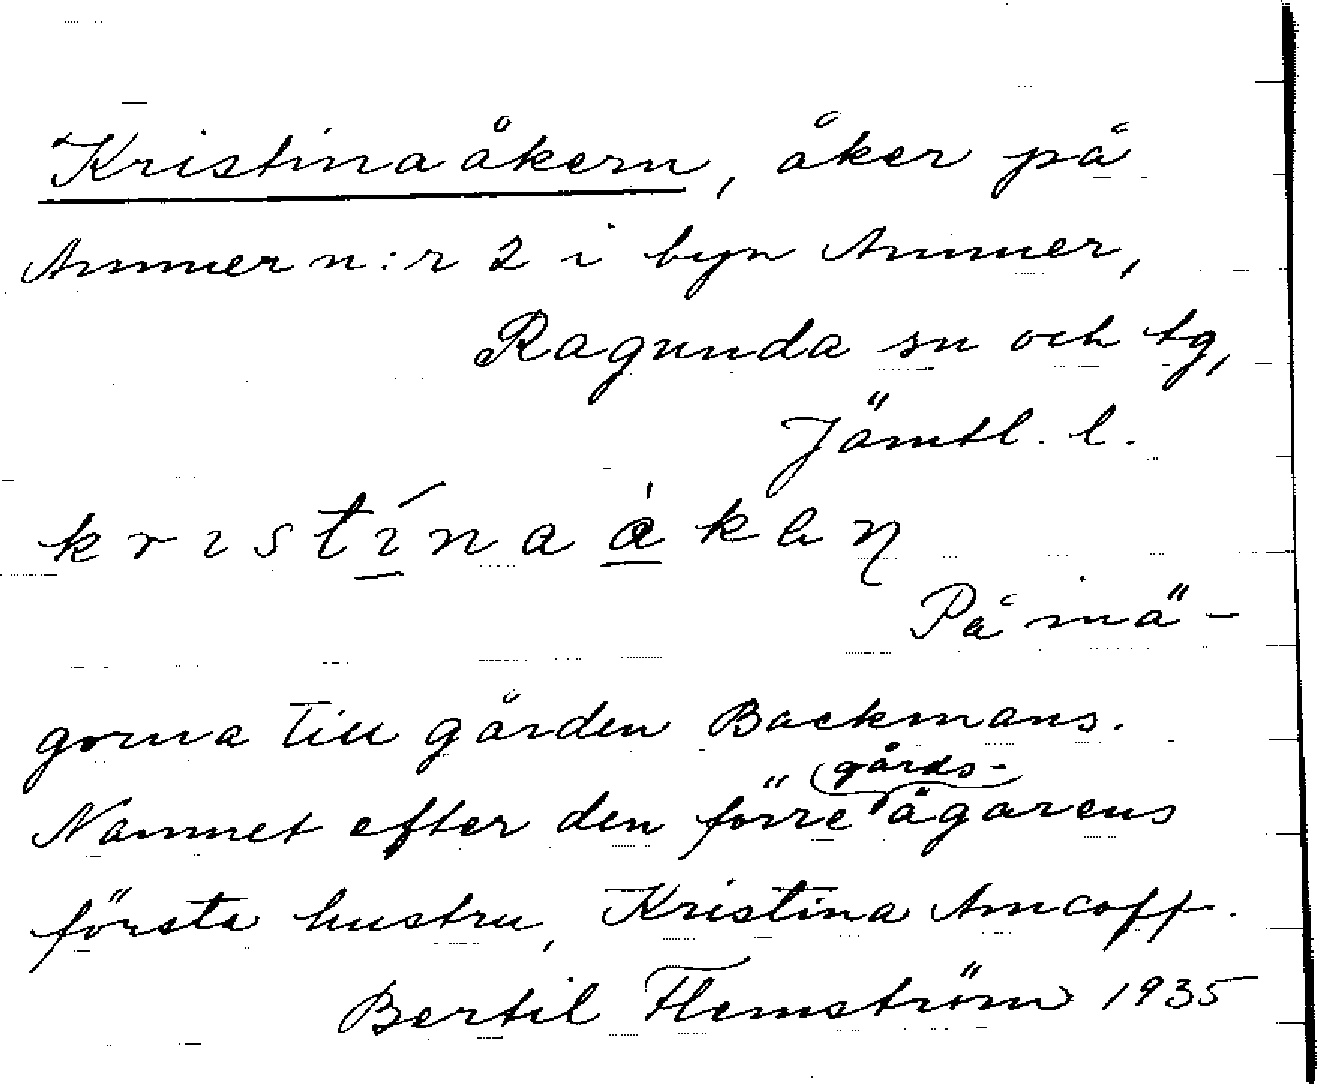 Kristinaåkern, åker på
Ammer n:r 2 i byn Ammer,
Ragunda sn och tg,
Jämtl. l.
kristí̱naὰ̱kaɳ
På inä-
gorna till gården Backmans.
gårds-
Namnet efter den förre ägarens
första hustru, Kristina Amcoff.
Bertil Flemström 1935